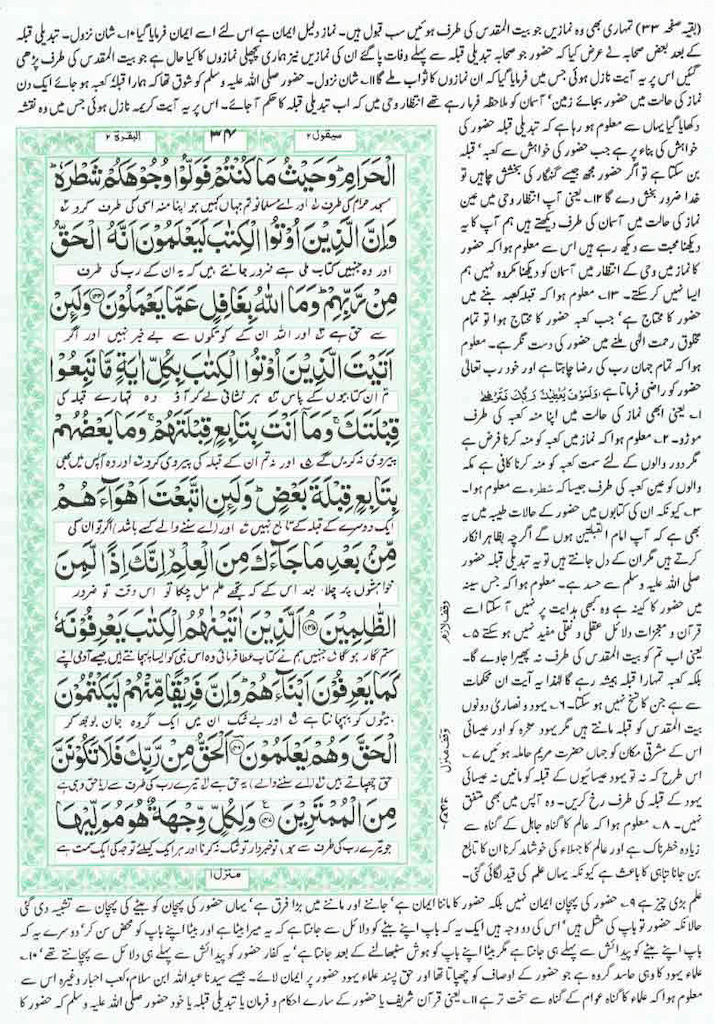 (بقیہ صفحہ ۳۳) تمہاری بھی وہ نمازیں جو بیت المقدس کی طرف ہوئیں سب قبول ہیں۔ نماز دلیل ایمان ہے اس لئے اسے ایمان فرمایا گیا ۱۰۔ شان نزول۔ تبدیلی قبلہ
کے بعد بعض صحابہ نے عرض کیا کہ حضور جو صحابہ تبدیلی قبلہ سے پہلے وفات پا گئے ان کی نمازیں نیز ہماری پچھلی نمازوں کا کیا حال ہے جو بیت المقدس کی طرف پڑھی
گئیں اس پر یہ آیت نازل ہوئی جس میں فرمایا گیا کہ ان نمازوں کا ثواب ملے گا ۱۱۔ شان نزول۔ حضور صلی اللہ علیہ وسلم کو شوق تھا کہ ہمارا قبلہ کعبہ ہو جائے ایک دن
نماز کی حالت میں حضور بجائے زمین، آسمان کو ملاحظہ فرما رہے تھے انتظار وحی میں کہ اب تبدیلی قبلہ کا حکم آ جائے۔ اس پر یہ آیت کریمہ نازل ہوئی جس میں وہ نقشہ
دکھایا گیا یہاں سے معلوم ہو رہا ہے کہ تبدیلی قبلہ حضور کی
خواہش کی بناء پر ہے جب حضور کی خواہش سے کعبہ، قبلہ
بن سکتا ہے تو اگر حضور مجھ جیسے گنہگار کی بخشش چاہیں تو
خدا ضرور بخش دے گا ۱۲۔ یعنی آپ انتظار وحی میں عین
نماز کی حالت میں آسمان کی طرف دیکھتے ہیں ہم آپ کا یہ
دیکھنا محبت سے دیکھ رہے ہیں اس سے معلوم ہوا کہ حضور
کا نماز میں وحی کے انتظار میں آسمان کو دیکھنا مکروہ نہیں ہم
ایسا نہیں کر سکتے۔ ۱۳۔ معلوم ہوا کہ قبلہ کعبہ بننے میں
حضور کا محتاج ہے، جب کعبہ حضور کا محتاج ہوا تو تمام
مخلوق رحمت الٰہی ملنے میں حضور کی دست نگر ہے۔ معلوم
ہوا کہ تمام جہان رب کی رضا چاہتا ہے اور خود رب تعالیٰ
حضور کو راضی فرماتا ہے وَلَسَوْفَ يُعْطِيْكَ رَبُّكَ فَتَرْضٰى
۱۔ یعنی ابھی نماز کی حالت میں اپنا منہ کعبہ کی طرف
موڑو۔ ۲۔ معلوم ہوا کہ نماز میں کعبہ کو منہ کرنا فرض ہے
مگر دور والوں کے لئے سمت کعبہ کو منہ کرنا کافی ہے مکہ
والوں کو عین کعبہ کی طرف جیسا کہ شَطْرَہٗ سے معلوم ہوا۔
۳۔ کیونکہ ان کی کتابوں میں حضور کے حالات طیبہ میں یہ
بھی ہے کہ آپ امام القبلتین ہوں گے اگرچہ بظاہر انکار
کرتے ہیں مگر ان کے دل جانتے ہیں تو یہ تبدیلی قبلہ حضور
صلی اللہ علیہ وسلم سے حسد ہے۔ معلوم ہوا کہ جس سینہ
میں حضور کا کینہ ہے وہ کبھی ہدایت پر نہیں آ سکتا اسے
قرآن و معجزات دلائل عقلی و نقلی مفید نہیں ہو سکتے ۵۔
یعنی اب تم کو بیت المقدس کی طرف نہ پھیرا جاوے گا۔
بلکہ کعبہ تمہارا قبلہ ہمیشہ رہے گا لہٰذا یہ آیت ان محکمات
سے ہے جن کا نسخ نہیں ہو سکتا۔ ۶۔ یہود و نصاریٰ دونوں
بیت المقدس کو قبلہ مانتے ہیں مگر یہود صخرہ کو اور عیسائی
اس کے مشرقی مکان کو جہاں حضرت مریم حاملہ ہوئیں ۷۔
اس طرح کہ نہ تو یہود عیسائیوں کے قبلہ کو مانیں نہ عیسائی
یہود کے قبلہ کی طرف رخ کریں۔ وہ آپس میں بھی متفق
نہیں۔ ۸۔ معلوم ہوا کہ عالم کا گناہ جاہل کے گناہ سے
زیادہ خطرناک ہے اور عالم کا جہلاء کی خوشامد کرنا ان کا تابع
بن جانا تباہی کا باعث ہے کیونکہ یہاں علم کی قید لگائی گئی۔
سیقول ۲
۳۴
البقرة ۲
الْحَرَامِ ۭ وَحَيْثُ مَا كُنْتُمْ فَوَلُّوْا وُجُوْهَكُمْ شَطْرَهٗ ۭ
مسجد حرام کی طرف اور اے مسلمانو تم جہاں کہیں ہو اپنا منہ اسی کی طرف کرو
وَاِنَّ الَّذِيْنَ اُوْتُوا الْكِتٰبَ لَيَعْلَمُوْنَ اَنَّهُ الْحَقُّ
اور وہ جنہیں کتاب ملی ہے ضرور جانتے ہیں کہ یہ ان کے رب کی طرف
مِنْ رَّبِّهِمْ ۭ وَمَا اللّٰهُ بِغَافِلٍ عَمَّا يَعْمَلُوْنَ ۝۱۴۴ وَلَئِنْ
سے حق ہے اور اللہ ان کے کوتکوں سے بے خبر نہیں اور اگر
اَتَيْتَ الَّذِيْنَ اُوْتُوا الْكِتٰبَ بِكُلِّ اٰيَةٍ مَّا تَبِعُوْا
تم ان کتابیوں کے پاس ہر نشانی لے کر آؤ وہ تمہارے قبلہ کی
قِبْلَتَكَ ۚ وَمَآ اَنْتَ بِتَابِعٍ قِبْلَتَهُمْ ۚ وَمَا بَعْضُهُمْ
پیروی نہ کریں گے اور نہ تم ان کے قبلہ کی پیروی کرو اور وہ آپس میں بھی
بِتَابِعٍ قِبْلَةَ بَعْضٍ ۭ وَلَئِنِ اتَّبَعْتَ اَهْوَآءَهُمْ
ایک دوسرے کے قبلہ کے تابع نہیں اور (اے سننے والے کسے باشد) اگر تو ان کی
مِّنْۢ بَعْدِ مَا جَآءَكَ مِنَ الْعِلْمِ ۙ اِنَّكَ اِذًا لَّمِنَ
خواہشوں پر چلا بعد اس کے کہ تجھے علم مل چکا تو اس وقت تو ضرور
الظّٰلِمِيْنَ ۝۱۴۵ اَلَّذِيْنَ اٰتَيْنٰهُمُ الْكِتٰبَ يَعْرِفُوْنَهٗ
ستم گار ہو گا جنہیں ہم نے کتاب عطا فرمائی وہ اس نبی کو ایسا پہچانتے ہیں جیسے آدمی اپنے
كَمَا يَعْرِفُوْنَ اَبْنَآءَهُمْ ۭ وَاِنَّ فَرِيْقًا مِّنْهُمْ لَيَكْتُمُوْنَ
بیٹوں کو پہچانتا ہے اور بے شک ان میں ایک گروہ جان بوجھ کر
الْحَقَّ وَهُمْ يَعْلَمُوْنَ ۝۱۴۶ اَلْحَقُّ مِنْ رَّبِّكَ فَلَا تَكُوْنَنَّ
حق چھپاتے ہیں (اے سننے والے) یہ حق ہے تیرے رب کی طرف سے (یا حق وہی ہے
مِنَ الْمُمْتَرِيْنَ ۝۱۴۷ وَلِكُلٍّ وِّجْهَةٌ هُوَ مُوَلِّيْهَا
جو تیرے رب کی طرف سے ہو) تو خبردار تو شک نہ کرنا اور ہر ایک کیلئے توجہ کی ایک سمت ہے
منزل ۱
وقف لازم
وقف منزل
علم بڑی چیز ہے ۹۔ حضور کی پہچان ایمان نہیں بلکہ حضور کا ماننا ایمان ہے، جاننے اور ماننے میں بڑا فرق ہے، یہاں حضور کی پہچان کو بیٹے کی پہچان سے تشبیہ دی گئی
حالانکہ حضور تو باپ کی مثل ہیں، اس کی دو وجہ ہیں ایک یہ کہ باپ اپنے بیٹے کو دلائل سے جانتا ہے کہ یہ میرا بیٹا ہے اور بیٹا اپنے باپ کو محض سن کر، دوسرے یہ کہ
باپ اپنے بیٹے کو پیدائش سے پہلے ہی جانتا ہے مگر بیٹا باپ کو ہوش سنبھالنے کے بعد جانتا ہے، یہ کفار حضور کو پیدائش سے پہلے ہی دلائل سے پہچانتے تھے، ۱۰۔
علماء یہود کا وہی حاسد گروہ ہے جو حضور کے اوصاف کو چھپاتا تھا اور حق پسند علماء یہود حضور پر ایمان لائے۔ جیسے سیدنا عبداللہ ابن سلام، کعب احبار وغیرہ اس سے
معلوم ہوا کہ علماء کا گناہ عوام کے گناہ سے سخت تر ہے ۱۱۔ یعنی قرآن شریف یا حضور کے سارے احکام و فرمان یا تبدیلی قبلہ یا خود حضور صلی اللہ علیہ وسلم کہ حضور کا